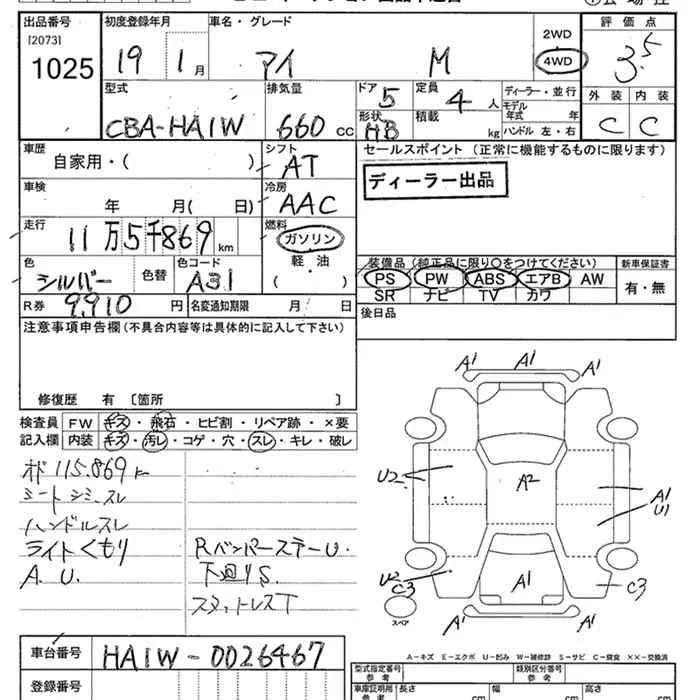 出品番号 初度登録年月 車名・グレード 評価点
[2073]
1025 19 1月 アイ M 2WD 4WD 3.5
外装 内装
型式 排気量 ドア 定員 ディーラー・並行
CBA-HA1W 660 cc 5 4人 モデル年式 年
形状 積載
HB kg ハンドル 左・右 C C
車歴 シフト セールスポイント (正常に機能するものに限ります)
自家用・( ) AT
ディーラー出品
車検 冷房
年 月( 日) AAC
走行 燃料
11万5千869 km ガソリン
軽・油
( )
色 色替 色コード 装備品 (純正品に限り○をつけてください) 新車保証書
シルバー A31 PS PW ABS エアB AW 有・無
SR ナビ TV カワ
R券 9,910 円 名変通知期限 月 日
後日品
注意事項申告欄 (不具合内容等は具体的に記入して下さい)
修復歴 有 〔箇所 〕
検査員 FW キズ・飛石・ヒビ割・リペア跡・×要
記入欄 内装 キズ・汚レ・コゲ・穴・スレ・キレ・破レ
115.869
シートシミ、スレ
ハンドルスレ
ライトくもり Rバンパーステー U.
A. U. 下廻りS.
スタットレスT
A1 A1 A1
U2 A2 A1
U1
U2 C3 A1 C3
スペア
A1 A1
A-キズ E-エクボ U-凹み W-補修跡 S-サビ C-腐食 ××-交換済
車台番号 HA1W-0026467
型式指定番号 参考 類別区分番号 参考
登録番号
車庫証明用 参考 長さ cm 幅 cm 高さ cm